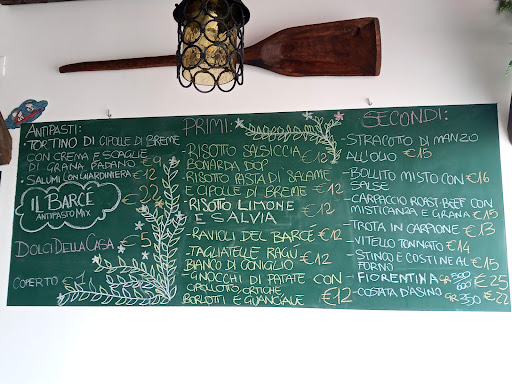 ANTIPASTI:
-TORTINO DI CIPOLLE DI BREME
CON CREMA E SCAGLIE
DI GRANA PADANO €9
-SALUMI CON GIARDINIERA €12
IL BARCÉ €22
ANTIPASTO MIX
DOLCI DELLA CASA €5
COPERTO €
PRIMI:
-RISOTTO SALSICCIA
BONARDA DOP €12
-RISOTTO PASTA DI SALAME
E CIPOLLE DI BREME €12
-RISOTTO LIMONE
E SALVIA €12
-RAVIOLI DEL BARCÉ €12
-TAGLIATELLE RAGÙ
BIANCO DI CONIGLIO €12
-GNOCCHI DI PATATE CON
ORTICHE
BORLOTTI E GUANCIALE €12
SECONDI:
-STRACOTTO DI MANZO
ALL'OLIO €15
-BOLLITO MISTO CON €16
SALSE
-CARPACCIO ROAST-BEEF CON
MISTICANZA E GRANA €15
-TROTA IN CARPIONE €13
-VITELLO TONNATO €14
-STINCO E COSTINE AL
FORNO €15
-FIORENTINA GR 500 600 €25
-COSTATA D'ASINO GR 350 €22